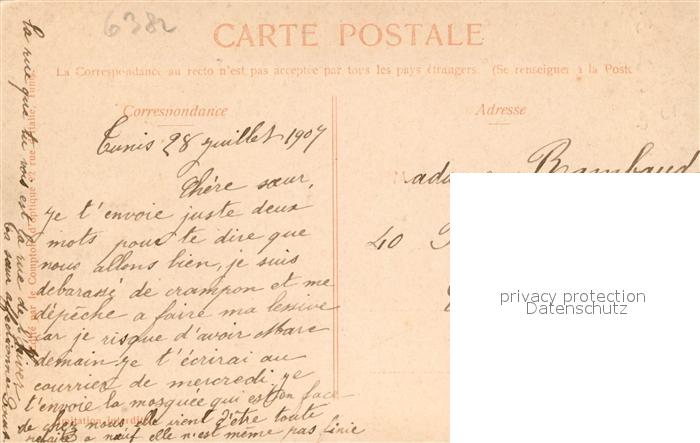 6382
CARTE POSTALE
La Correspondance au recto n'est pas acceptée par tous les pays étrangers. (Se renseigner à la Poste
Correspondance
Adresse
Tunis 28 juillet 1907
Chère sœur,
je t'envoie juste deux
mots pour te dire que
nous allons bien, je suis
debarassé de crampon et me
dépèche a faire ma lessive
car je risque d'avoir Marc
demain je t'écrirai au
courrier de mercredi je
t'envoie la mosquée qui est en face
de chez nous elle vient d'être toute
refaite a neuf elle n'est même pas finie
la rue que tu vois est la rue de
ta sœur affectionnée
Imitation interdite
par le Comptoir d'Optique rue d'Italie, Tunis
Rambaud
40
privacy protection
Datenschutz